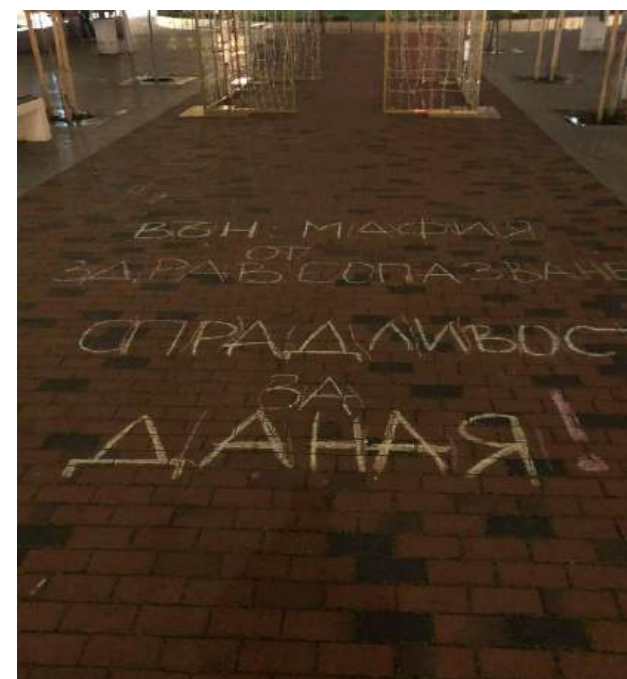 ВЪН МАФИЯ
ОТ
ЗДРАВСОПАЗВАНЕ
СПРАДЛИВОС
ЗА
ДАНАЯ!